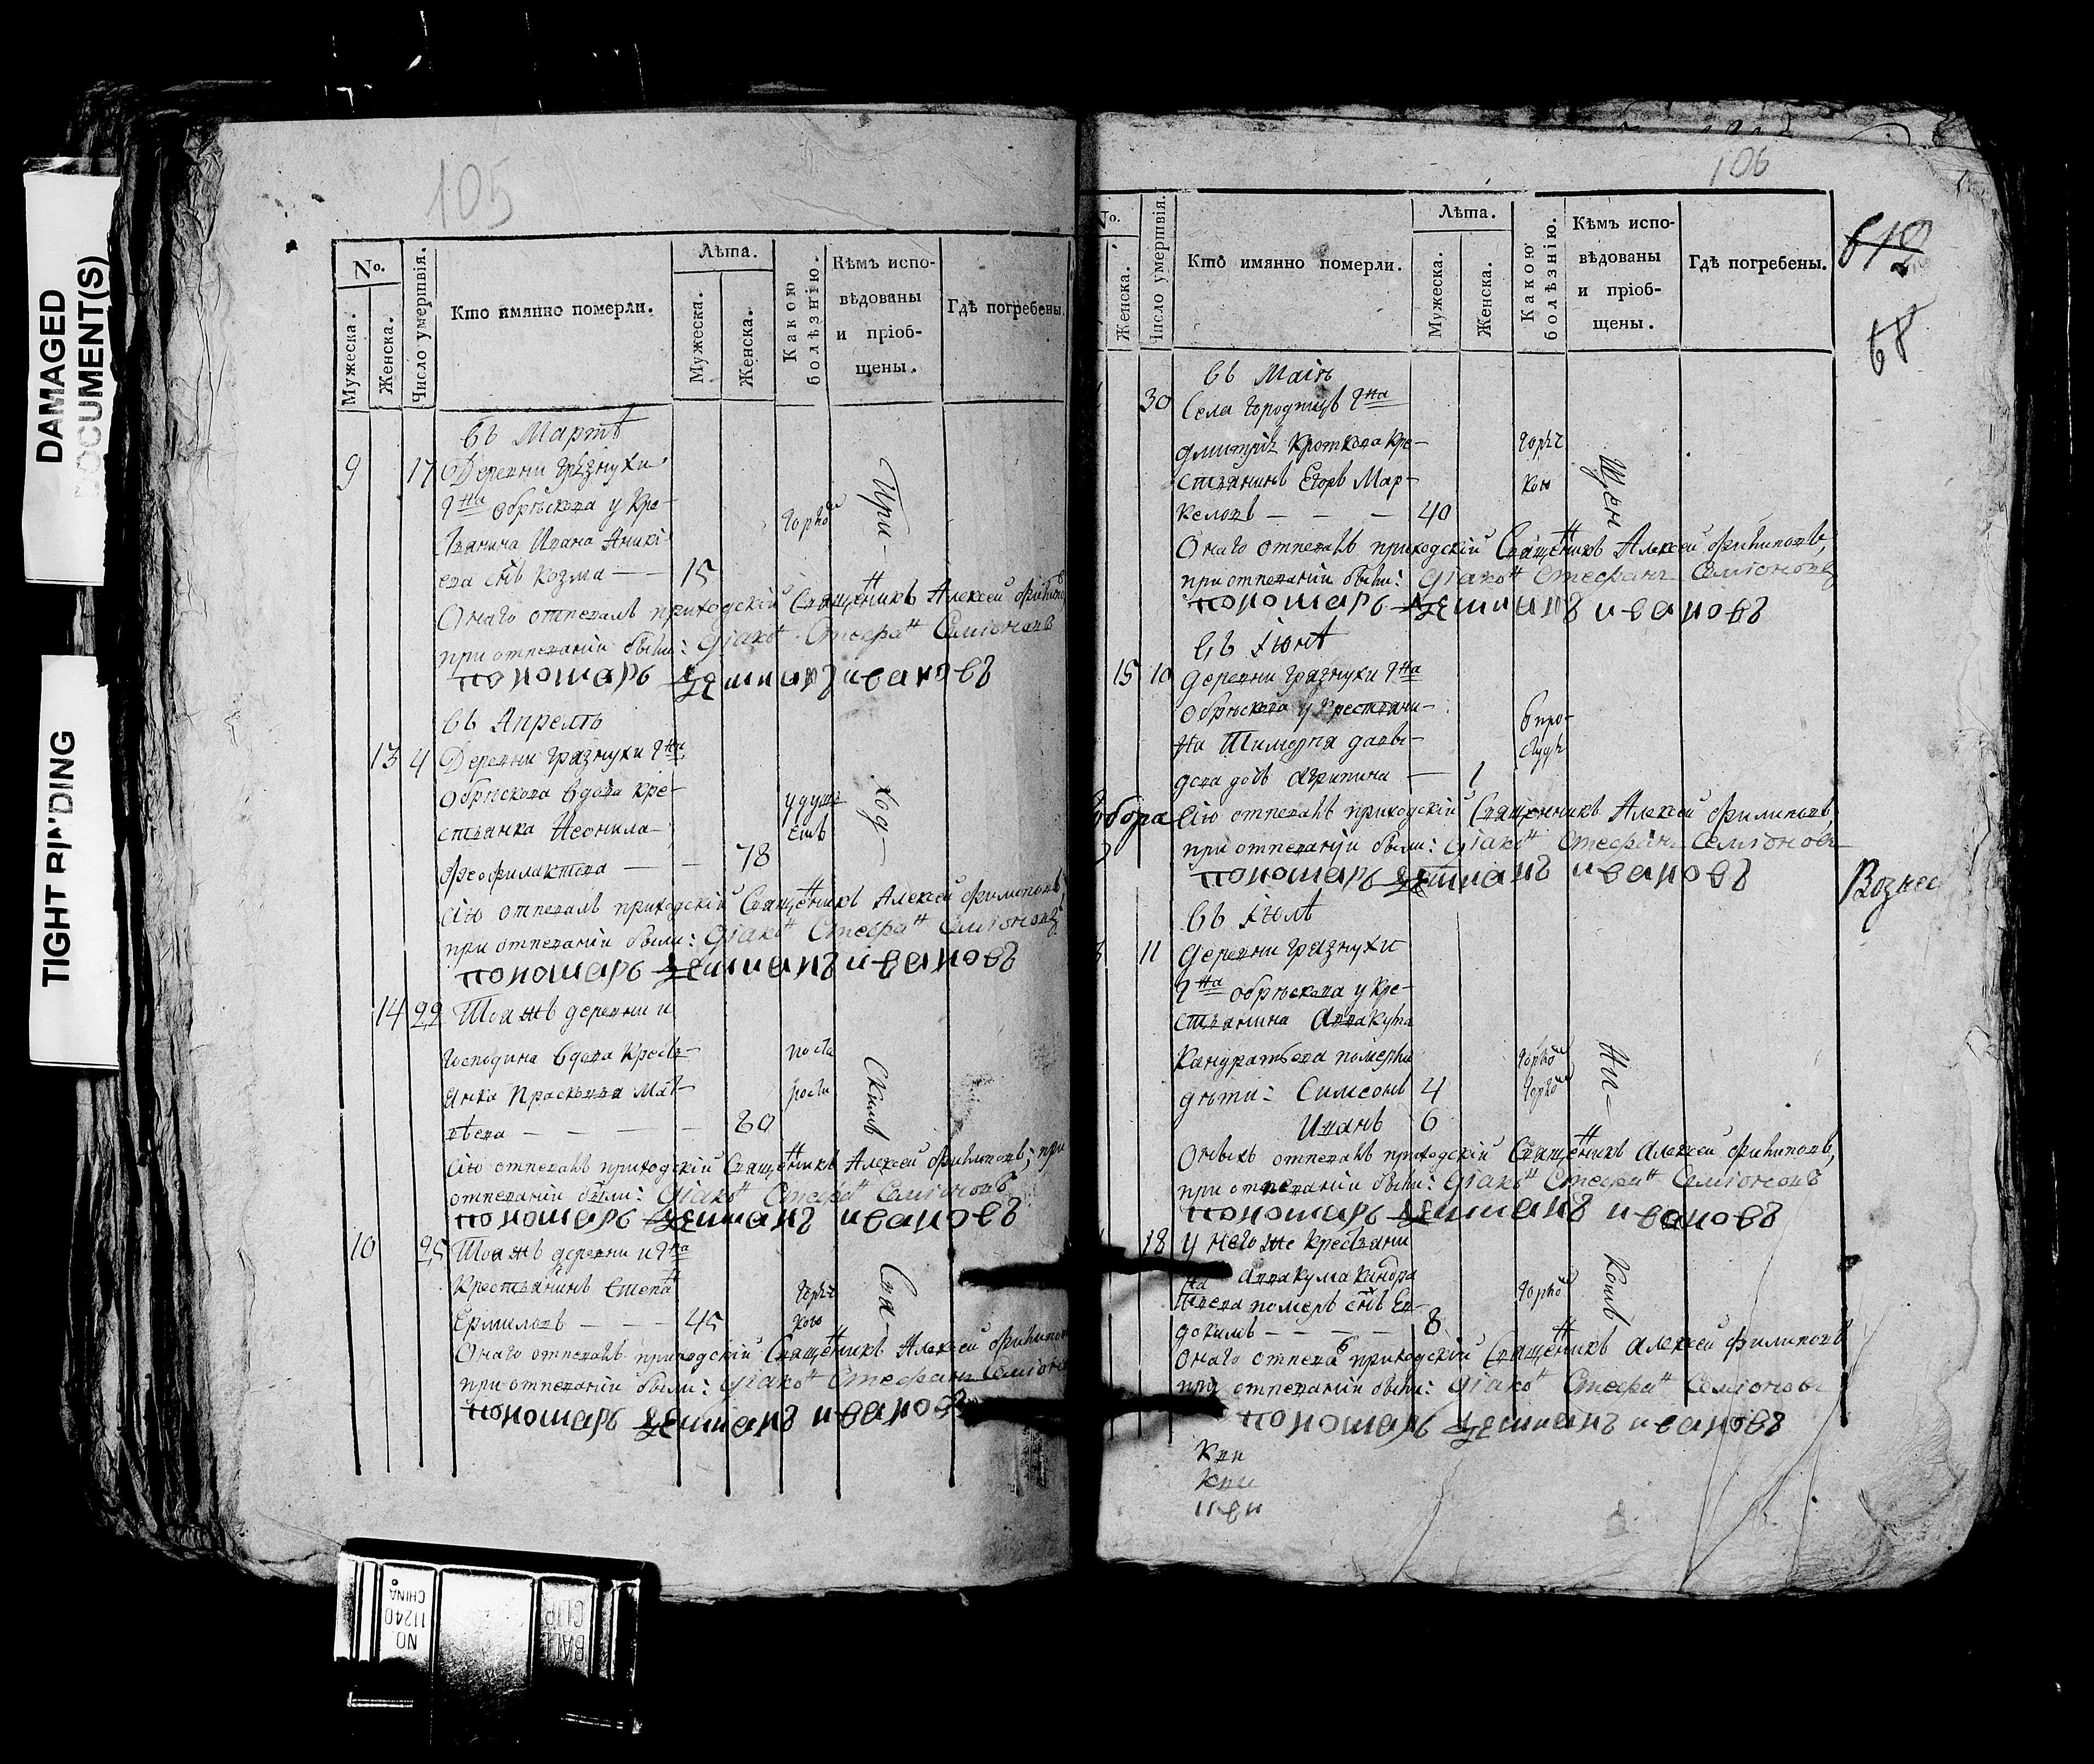 DAMAGED
DOCUMENT(S)
TIGHT BINDING
105
№.
Мужеска.
Женска.
Число умершвія.
Кто имянно померли.
Лѣта.
Мужеска.
Женска.
Какою болѣзнію.
Кѣмъ испо-
вѣдованы
и пріоб-
щены.
Гдѣ погребены.
въ Мартѣ
9 17 Деревни Грязнухи
Гна Обрѣскова у кре-
стьянина Ивана Аникі
ева снъ Козма — 15
Горячкою
Онаго отпевалъ приходскій Священникъ Алексей Филипов
при отпеваніи были: Діаконъ Стефанъ Семіоновъ
пономарь Демианъ ивановъ
въ Апрелѣ
13 4 Деревни Грязнухи Гна
Обрѣскова вдова кре-
стьянка Неонила
Феофилактова — — 78
удушь
емъ
Сію отпевалъ приходскій Священникъ Алексей Филиповъ
при отпеваніи были: Діаконъ Стефанъ Семіоновъ
пономарь Демианъ ивановъ
14 22 Тоя жъ деревни и
Господина вдова кресть-
янка Прасковья Мат-
вѣева — — — — 80
Оть ста
рости
Сію отпевалъ приходскій Священникъ Алексей Филиповъ; при
отпеваніи были: Діаконъ Стефанъ Семіоновъ
пономарь Демианъ ивановъ
10 25 Тоя жъ деревни и Гна
Крестьянинъ Степанъ
Ермиловъ — — — 45
Горяч
кою
Онаго отпевалъ приходскій Священникъ Алексей Филипов
при отпеваніи были: Діаконъ Стефанъ Семіонов
пономарь Демианъ ивановъ
При-
ход-
скимъ
Свя-
106
№.
Женска.
Число умершвія.
Кто имянно померли.
Лѣта.
Мужеска.
Женска.
Какою болѣзнію.
Кѣмъ испо-
вѣдованы
и пріоб-
щены.
Гдѣ погребены.
619
68
въ Маіѣ
30 Села Городищъ Гна
Дмитрія Кроткова кре-
стьянинъ Егоръ Мар-
келовъ — — — 40
Горяч
кою
Онаго отпевалъ приходскій Священникъ Алексей Филиповъ,
при отпеваніи были: Діаконъ Стефанъ Семіоновъ
пономарь Демианъ ивановъ
въ Іюнѣ
15 10 Деревни Грязнухи Гна
Обрѣскова у крестьяни-
на Тимофея Давы-
дова дочь Агрипина — 1
Сію отпевалъ приходскій Священникъ Алексей Филиповъ
при отпеваніи были: Діаконъ Стефанъ Семіоновъ
пономарь Демианъ ивановъ
собора
Вознес
въ Іюлѣ
11 Деревни Грязнухи
Гна Обрѣскова у кре-
стьянина Аввакума
Кандратьева померли
дѣти: Симеонъ 4 Горячкою
Иванъ 6 Горячкою
Оныхъ отпевалъ приходскій Священникъ Алексей Филиповъ,
при отпеваніи были: Діаконъ Стефанъ Семіоновъ
пономарь Демианъ ивановъ
18 У него же крестьяни
на Аввакума Кандра
тьева померъ снъ Ев-
докимъ — — — — 8
Горячкою
Онаго отпевалъ приходскій Священникъ Алексей Филиповъ
при отпеваніи были: Діаконъ Стефанъ Семіоновъ
пономарь Демианъ ивановъ
щен
ни-
комъ
NO.
11240
CHINA